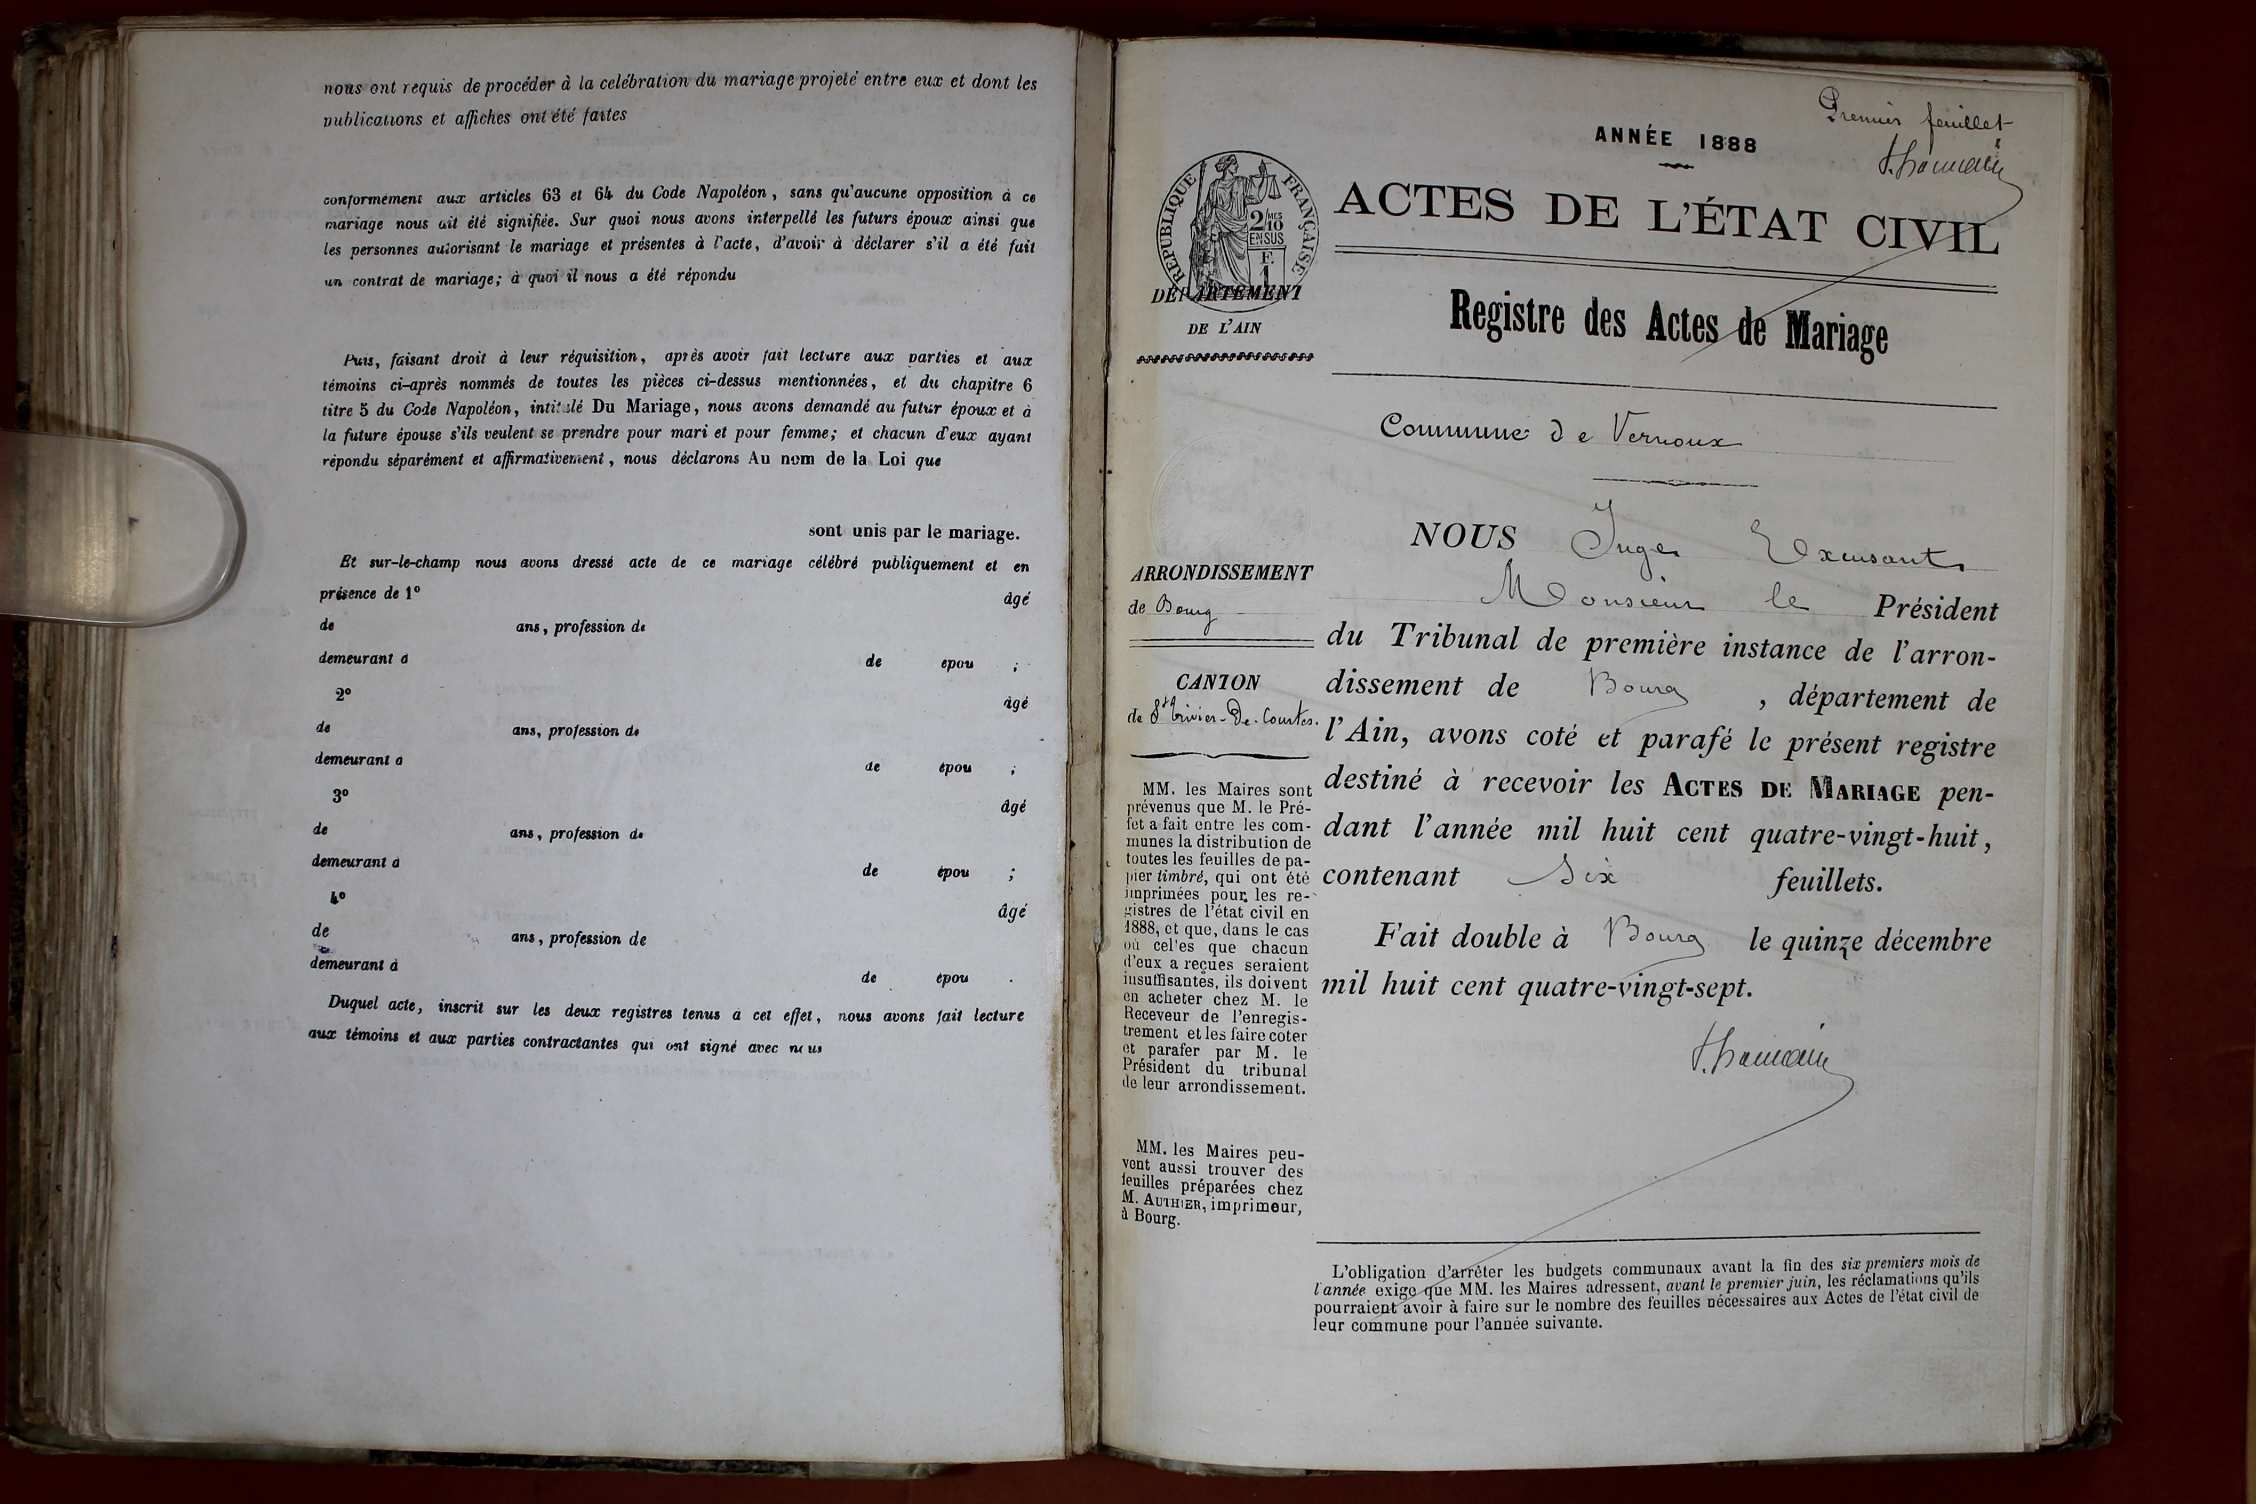 nous ont requis de procéder à la celébration du mariage projeté entre eux et dont les
publications et affiches ont été faites
conformément aux articles 63 et 64 du Code Napoléon, sans qu'aucune opposition à ce
mariage nous ait été signifiée. Sur quoi nous avons interpellé les futurs époux ainsi que
les personnes autorisant le mariage et présentes à l'acte, d'avoir à déclarer s'il a été fait
un contrat de mariage; à quoi il nous a été répondu
Puis, faisant droit à leur réquisition, après avoir fait lecture aux parties et aux
témoins ci-après nommés de toutes les pièces ci-dessus mentionnées, et du chapitre 6
titre 5 du Code Napoléon, intitulé Du Mariage, nous avons demandé au futur époux et à
la future épouse s'ils veulent se prendre pour mari et pour femme; et chacun d'eux ayant
répondu séparément et affirmativement, nous déclarons Au nom de la Loi que
sont unis par le mariage.
Et sur-le-champ nous avons dressé acte de ce mariage célébré publiquement et en
présence de 1º âgé
de ans, profession de
demeurant à de épou ;
2º âgé
de ans, profession de
demeurant à de épou ;
3º âgé
de ans, profession de
demeurant à de épou ;
4º âgé
de ans, profession de
demeurant à de épou .
Duquel acte, inscrit sur les deux registres tenus à cet effet, nous avons fait lecture
aux témoins et aux parties contractantes qui ont signé avec nous
Premier feuillet
ANNÉE 1888
RÉPUBLIQUE FRANÇAISE
2/10 MES
EN SUS
F.
1
ACTES DE L'ÉTAT CIVIL
DÉPARTEMENT
DE L'AIN
Registre des Actes de Mariage
Commune de Vernoux
ARRONDISSEMENT
de Bourg
CANTON
de St Trivier-De-Courtes.
MM. les Maires sont
prévenus que M. le Pré-
fet a fait entre les com-
munes la distribution de
toutes les feuilles de pa-
pier timbré, qui ont été
imprimées pour les re-
gistres de l'état civil en
1888, et que, dans le cas
où celles que chacun
d'eux a reçues seraient
insuffisantes, ils doivent
en acheter chez M. le
Receveur de l'enregis-
trement et les faire coter
et parafer par M. le
Président du tribunal
de leur arrondissement.
MM. les Maires peu-
vent aussi trouver des
feuilles préparées chez
M. AUTHIER, imprimeur,
à Bourg.
NOUS Juge Excusant
Monsieur le Président
du Tribunal de première instance de l'arron-
dissement de Bourg , département de
l'Ain, avons coté et parafé le présent registre
destiné à recevoir les ACTES DE MARIAGE pen-
dant l'année mil huit cent quatre-vingt-huit,
contenant Six feuillets.
Fait double à Bourg le quinze décembre
mil huit cent quatre-vingt-sept.
L'obligation d'arrêter les budgets communaux avant la fin des six premiers mois de
l'année exige que MM. les Maires adressent, avant le premier juin, les réclamations qu'ils
pourraient avoir à faire sur le nombre des feuilles nécessaires aux Actes de l'état civil de
leur commune pour l'année suivante.